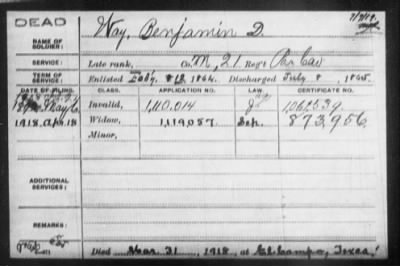 DEAD
Way, Benjamin D.
NAME OF
SOLDIER:
SERVICE:
Late rank, Co. M, 21 Reg't Pa Cav
TERM OF
SERVICE:
Enlisted Feby. 1864. Discharged July 8, 1865.
DATE OF FILING. CLASS. APPLICATION NO. LAW. CERTIFICATE NO.
Invalid, 1,110,014
Widow, 1918. Apr. 18 1,119,057 873,956
Minor,
ADDITIONAL
SERVICES:
REMARKS:
Died Mar. 31, 1918, at El Campo, Texas